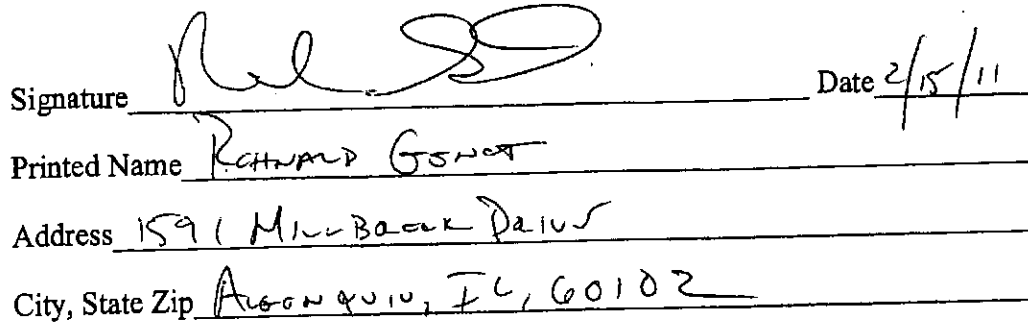 Signature Date 2/15/11
Printed Name
Address 1591 Millbrook Drive
City, State Zip Algonquin, IL, 60102